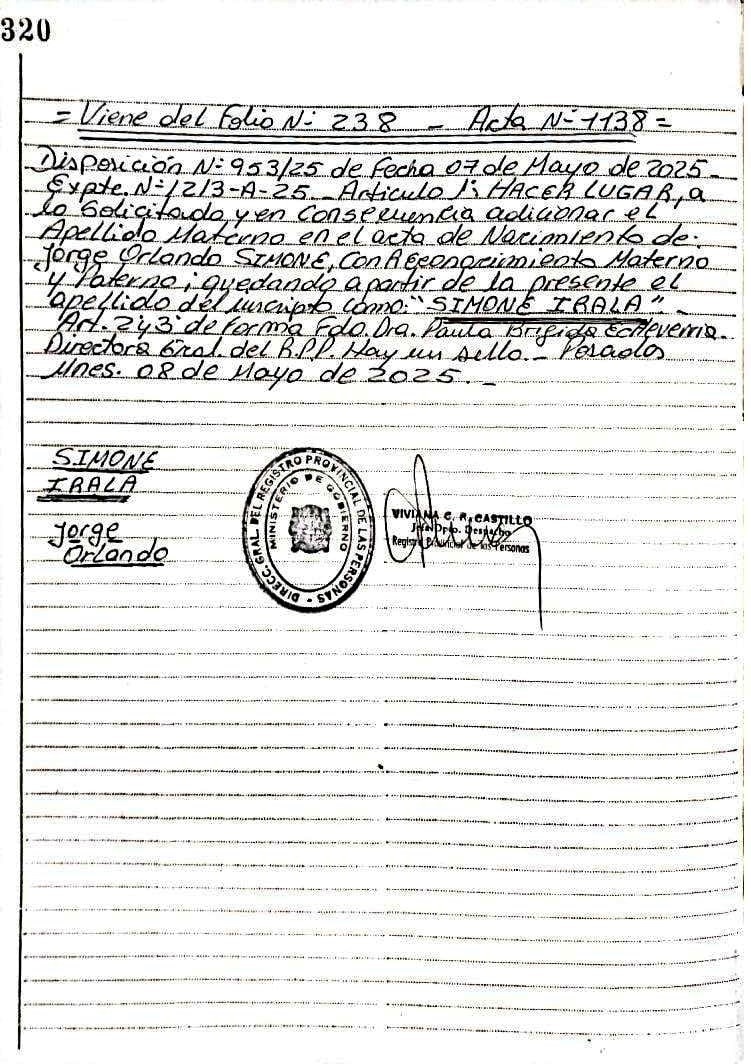 320
= Viene del Folio Nº 238 - Acta Nº 1138 =
Disposición Nº 953/25 de Fecha 07 de Mayo de 2025-
Expte. Nº 1213-A-25. Articulo 1º: HACER LUGAR, a
lo Solicitado y en Consecuencia adicionar el
Apellido Materno en el acta de Nacimiento de:
Jorge Orlando SIMONE, Con Reconocimiento Materno
y Paterno; quedando a partir de la presente el
apellido del inscripto como: "SIMONE IRALA".-
Art. 2 y 3º de forma Fdo. Dra. Paula Brigida Echeverria.
Directora Gral. del R.P.P. Hay un sello.- Posadas
Mnes. 08 de Mayo de 2025.-
SIMONE
IRALA
Jorge
Orlando
DIRECC. GRAL. DEL REGISTRO PROVINCIAL DE LAS PERSONAS -
MINISTERIO DE GOBIERNO
VIVIANA C. R. CASTILLO
Jefe Dpto. Despacho
Registro Provincial de las Personas